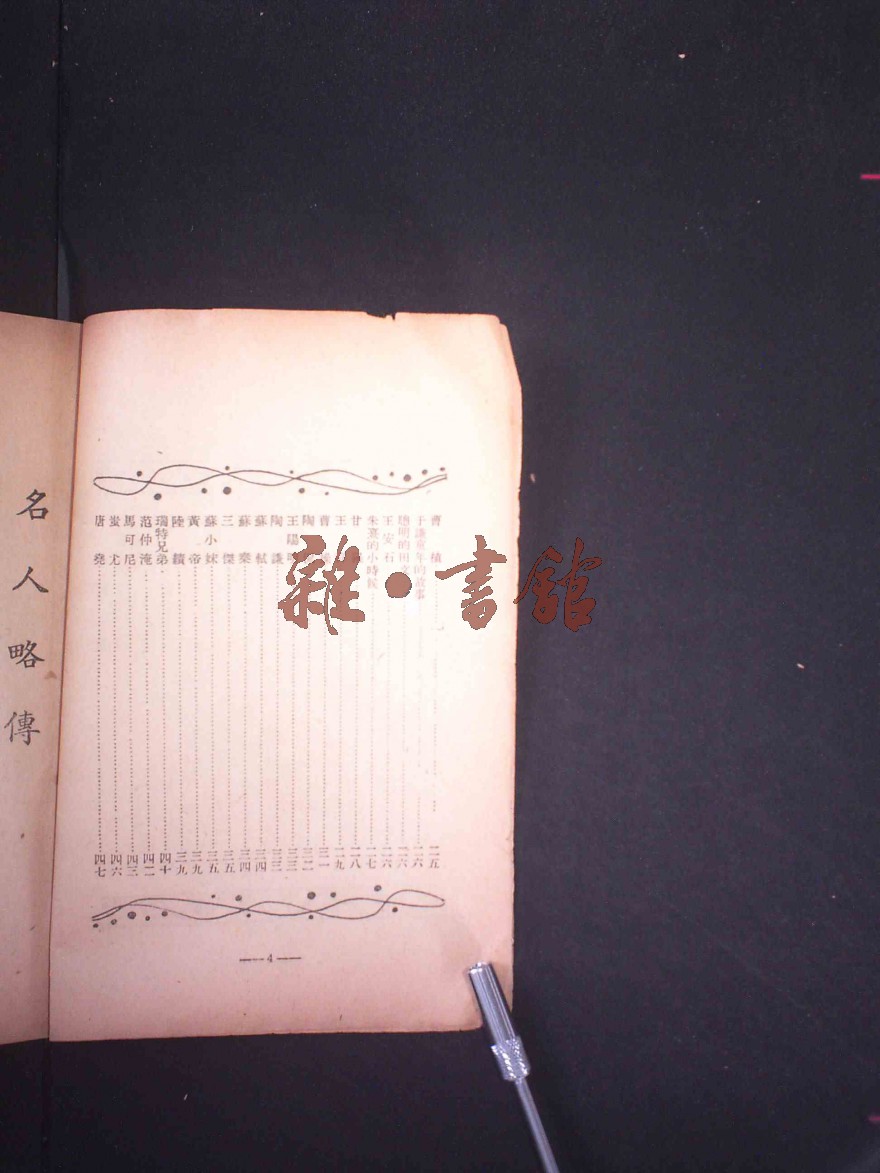 曹植 二五
于謙童年的故事 二六
聰明的田文 二六
王安石 二六
朱熹的小時候 二七
甘 二八
王 二九
曹 三一
陶 三二
王陽明 三三
陶謙 三三
蘇軾 三四
蘇欒 三四
三傑 三五
蘇小妹 三五
黃帝 三九
陸績 三九
瑞特兄弟 四十
范仲淹 四二
馬可尼 四三
蚩尤 四六
唐堯 四七
—4—
名人略傳
雜·書館